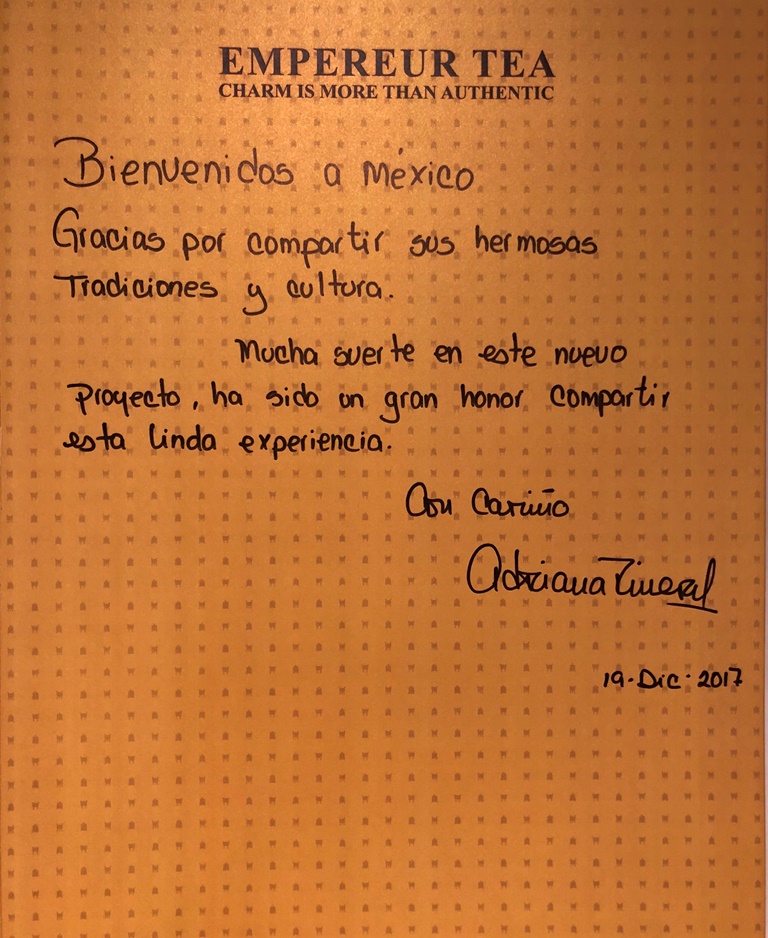 EMPEREUR TEA
CHARM IS MORE THAN AUTHENTIC
Bienvenidos a México
Gracias por compartir sus hermosas
Tradiciones y cultura.
Mucha suerte en este nuevo
Proyecto, ha sido un gran honor compartir
esta linda experiencia.
Con Cariño
Adriana
19. Dic. 2017